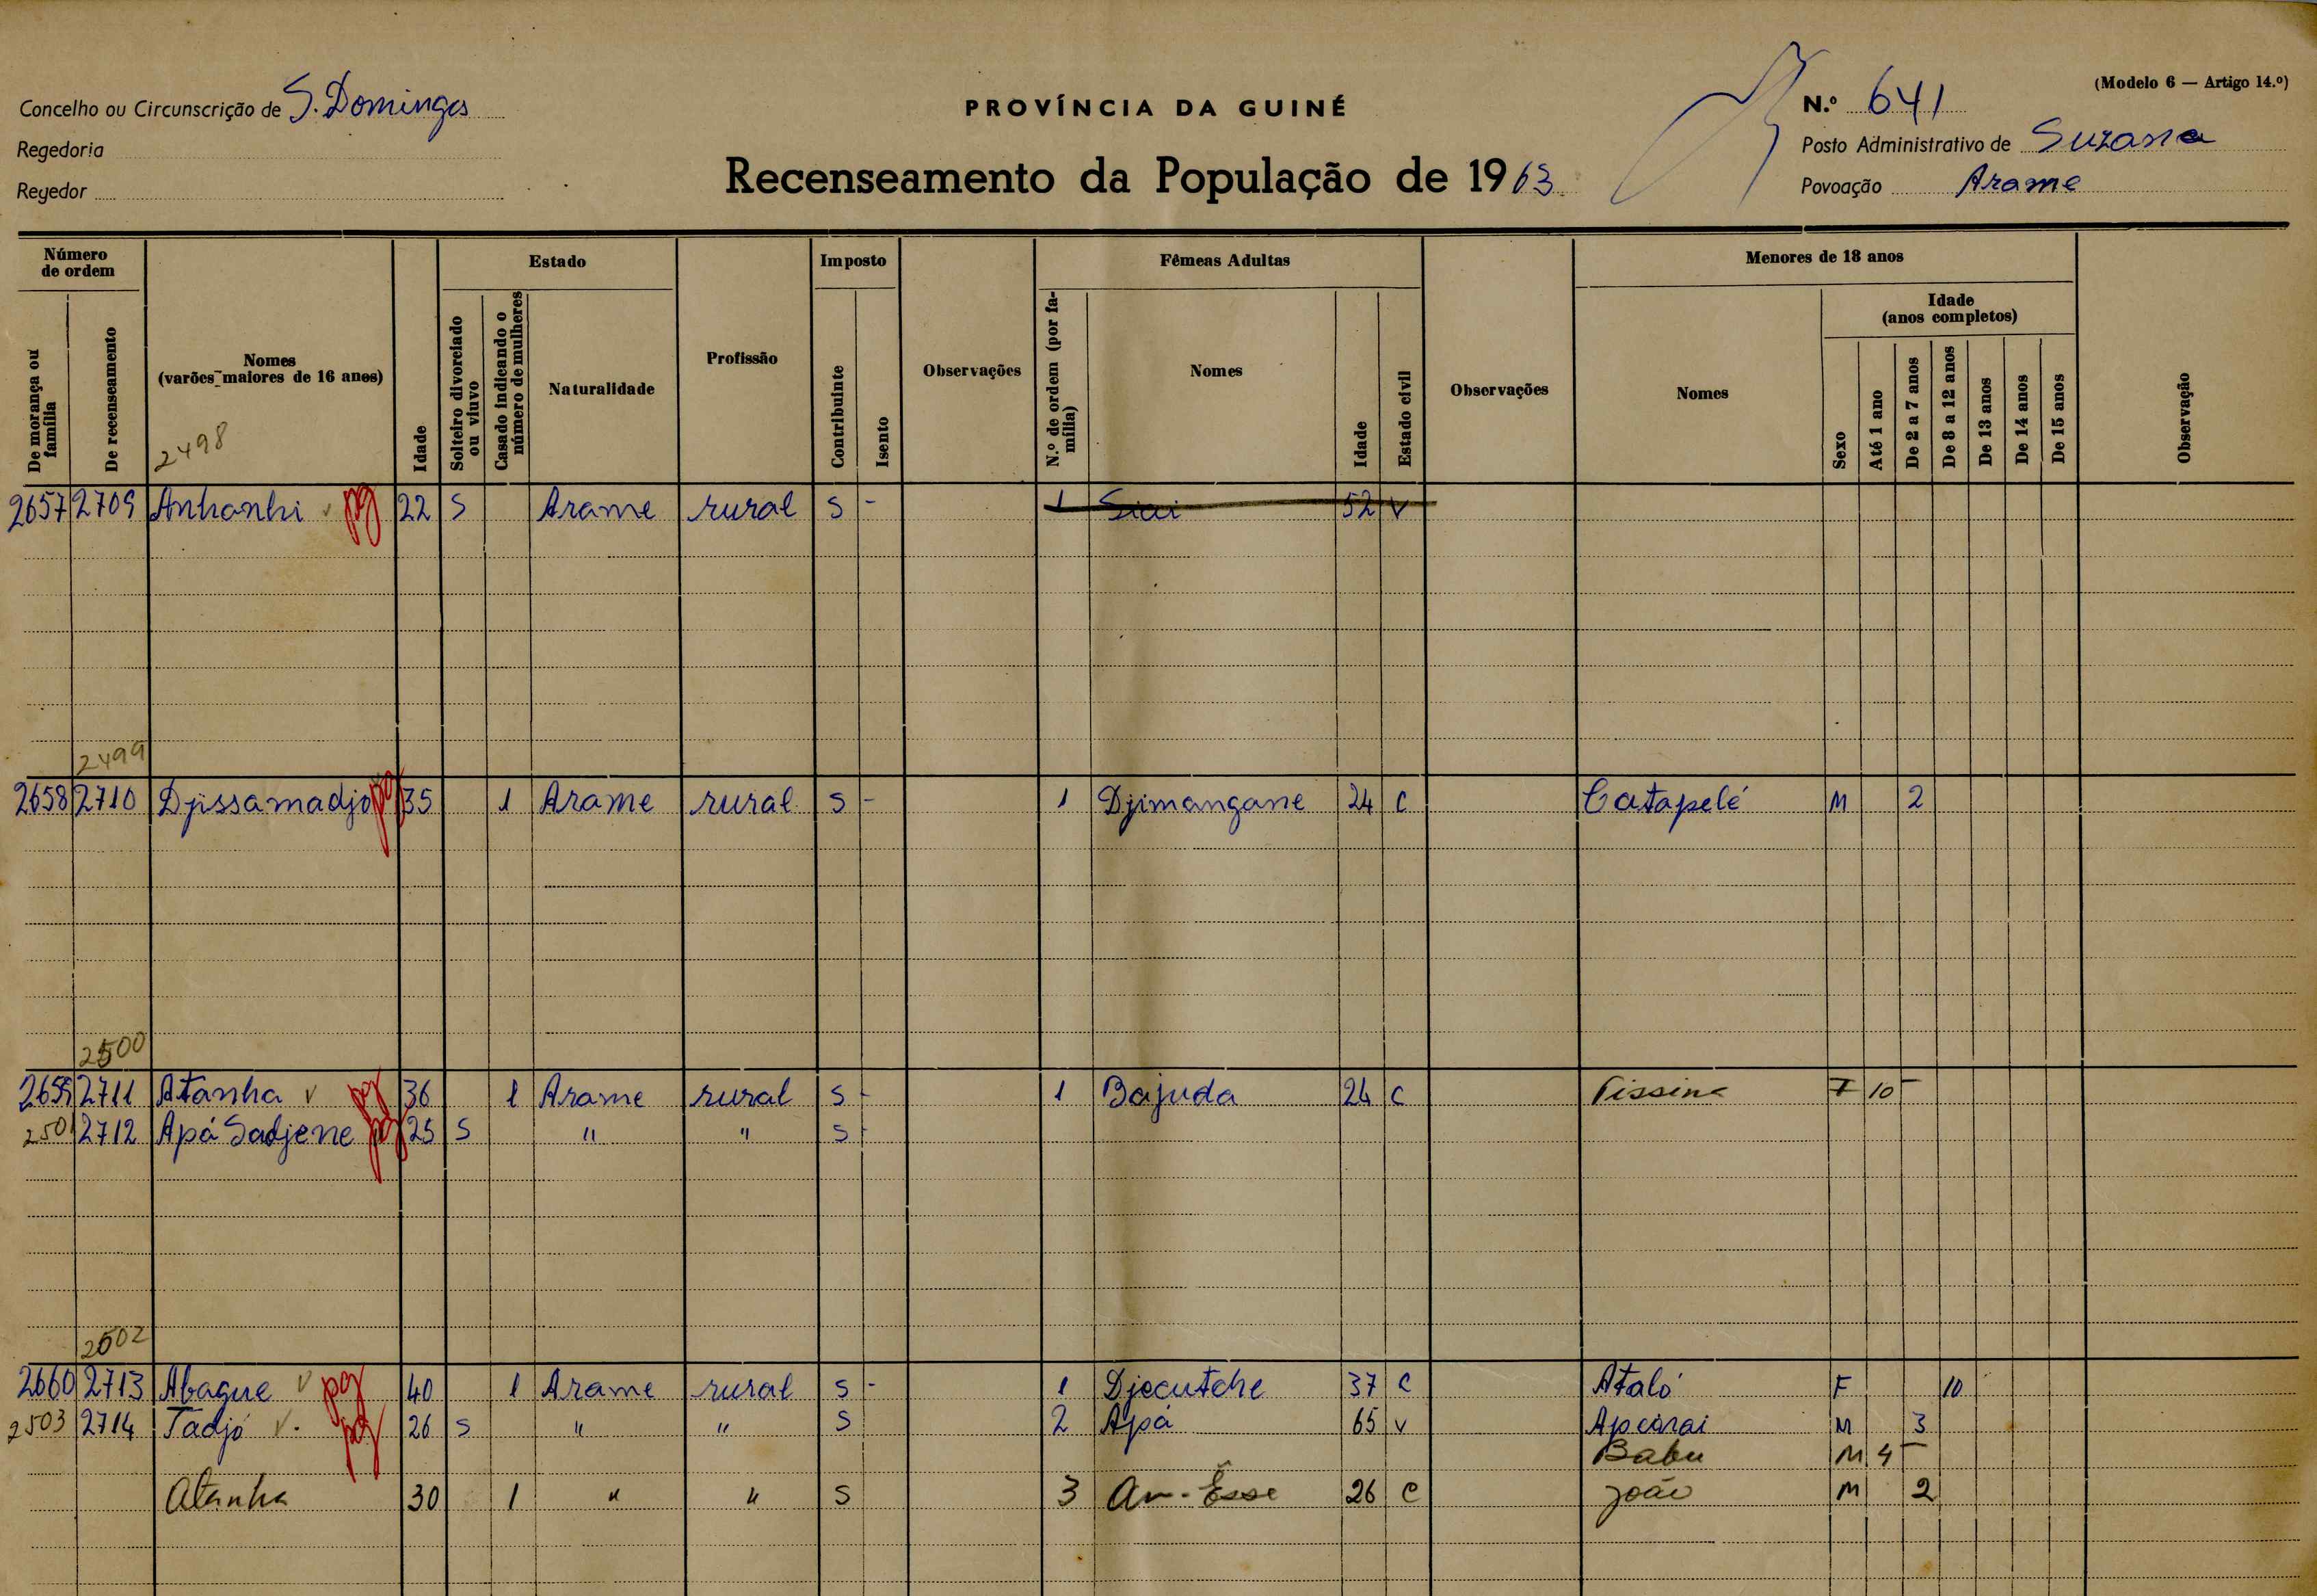 (Modelo 6 — Artigo 14.º)
Concelho ou Circunscrição de S. Domingos
PROVÍNCIA DA GUINÉ
N.º 641
Regedoria
Posto Administrativo de Suzana
Regedor
Recenseamento da População de 1963
Povoação Arame
Número de ordem
Estado
Imposto
Fêmeas Adultas
Menores de 18 anos
De morança ou família
De recenseamento
Nomes
(varões maiores de 16 anos)
2498
Idade
Solteiro divorciado ou viuvo
Casado indicando o número de mulheres
Naturalidade
Profissão
Contribuinte
Isento
Observações
N.º de ordem (por família)
Nomes
Idade
Estado civil
Observações
Nomes
Sexo
Idade
(anos completos)
Até 1 ano
De 2 a 7 anos
De 8 a 12 anos
De 13 anos
De 14 anos
De 15 anos
Observação
2657 2709 Anhanhi v pg 22 S Arame rural S - 1 Siai 52 V
2499
2658 2710 Djissamadjo pg 35 1 Arame rural S - 1 Djimangane 24 C Catapelé M 2
2500
2659 2711 Atanha v pg 36 1 Arame rural S - 1 Bajuda 24 C F 10
2501 2712 Apá Sadjene pg 25 S " " S -
2502
2660 2713 Abague v pg 40 1 Arame rural S - 1 Djecutche 37 C Ataló F 10
2503 2714 Tadjó v. pg 26 S " " S 2 Apá 65 V Apcarai M 3
Babu M 4
Atanha 30 1 " " S 3 Am-Êsse 26 C João M 2